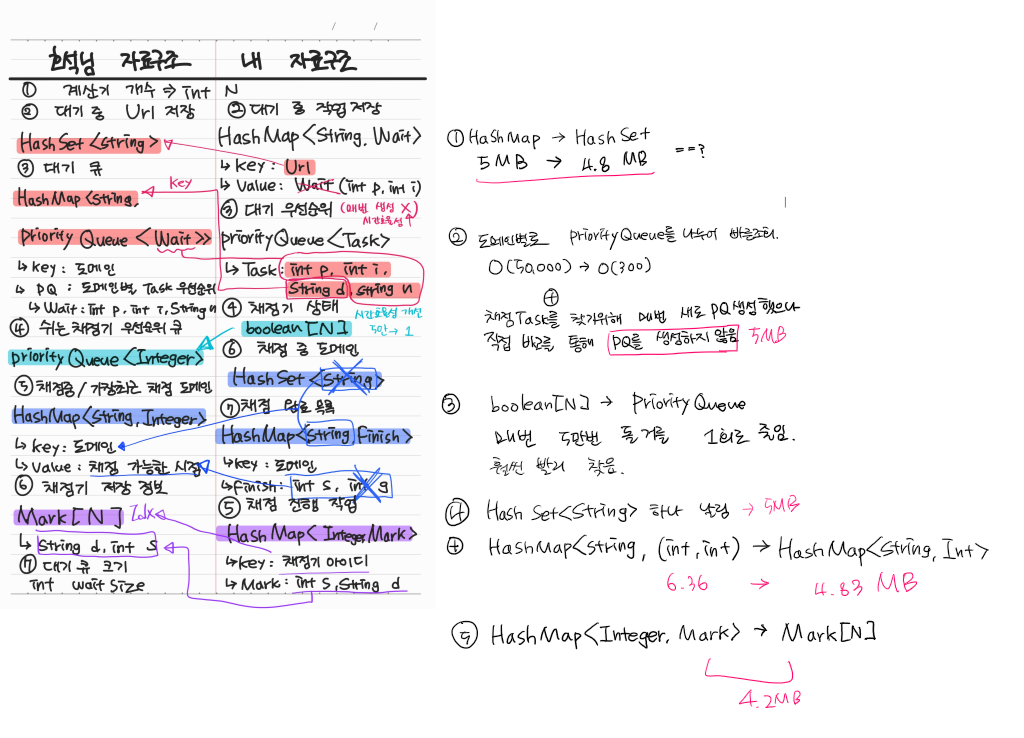 현석님 자료구조
① 계산기 개수 ⇒ int N
② 대기 중 Url 저장
HashSet<String>
③ 대기 큐
HashMap<String,
PriorityQueue<Wait>>
↳ key : 도메인
↳ PQ : 도메인별 Task 우선순위
↳ Wait : int p, int i, String n
④ 쉬는 채점기 우선순위 큐
priority Queue<Integer>
⑤ 채점중 / 가장최근 채점 도메인
HashMap<String, Integer>
↳ key : 도메인
↳ Value : 채점 가능한 시점
⑥ 채점기 저장 정보
Mark[N] Idx
↳ String d, int s
⑦ 대기 큐 크기
int wait size
내 자료구조
② 대기 중 작업 저장
HashMap<String, Wait>
↳ key : Url
↳ Value : Wait (int p, int i)
key
③ 대기 우선순위 (매번 생성 X)
시간효율성↑
priorityQueue<Task>
↳ Task : int p, int i,
String d, String n
④ 채점기 상태
시간효율성 개선
5만→ 1
boolean[N]
⑥ 채점 중 도메인
HashSet<String>
⑦ 채점 완료 목록
HashMap<String Finish>
↳ key : 도메인
↳ Finish : int s, int g
⑤ 채점 진행 작업
HashMap<Integer, Mark>
↳ key : 채점기 아이디
↳ Mark : int s, String d
① HashMap → HashSet
5MB → 4.8 MB ==?
② 도메인별로 PriorityQueue를 나누어 빠른조회.
O(50,000) → O(300)
+
채점Task를 찾기위해 매번 새로 PQ생성했으나
직접 비교를 통해 PQ를 생성하지 않음 5MB
③ boolean[N] → PriorityQueue
매번 5만번 돌 거를 1회로 줄임.
훨씬 빨리 찾음.
④ Hash Set<String> 하나 날림 → 5MB
+ HashMap<String, (int, int) → HashMap<String, Int>
6.36 → 4.83 MB
⑤ HashMap<Integer, Mark> → Mark[N]
4.2MB